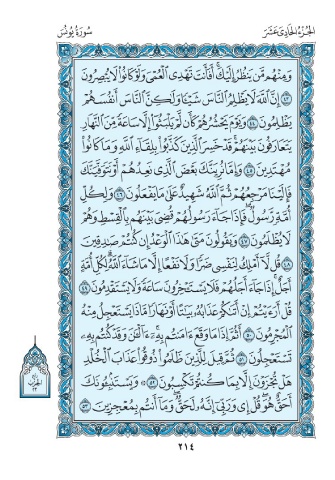 الجزء الحادي عشر
سورة يونس
وَمِنْهُم مَّن يَنظُرُ إِلَيْكَ ۚ أَفَأَنتَ تَهْدِي الْعُمْيَ وَلَوْ كَانُوا لَا يُبْصِرُونَ
﴿٤٣﴾ إِنَّ اللَّهَ لَا يَظْلِمُ النَّاسَ شَيْئًا وَلَٰكِنَّ النَّاسَ أَنفُسَهُمْ
يَظْلِمُونَ ﴿٤٤﴾ وَيَوْمَ يَحْشُرُهُمْ كَأَن لَّمْ يَلْبَثُوا إِلَّا سَاعَةً مِّنَ النَّهَارِ
يَتَعَارَفُونَ بَيْنَهُمْ ۚ قَدْ خَسِرَ الَّذِينَ كَذَّبُوا بِلِقَاءِ اللَّهِ وَمَا كَانُوا
مُهْتَدِينَ ﴿٤٥﴾ وَإِمَّا نُرِيَنَّكَ بَعْضَ الَّذِي نَعِدُهُمْ أَوْ نَتَوَفَّيَنَّكَ
فَإِلَيْنَا مَرْجِعُهُمْ ثُمَّ اللَّهُ شَهِيدٌ عَلَىٰ مَا يَفْعَلُونَ ﴿٤٦﴾ وَلِكُلِّ
أُمَّةٍ رَّسُولٌ ۖ فَإِذَا جَاءَ رَسُولُهُمْ قُضِيَ بَيْنَهُم بِالْقِسْطِ وَهُمْ
لَا يُظْلَمُونَ ﴿٤٧﴾ وَيَقُولُونَ مَتَىٰ هَٰذَا الْوَعْدُ إِن كُنتُمْ صَادِقِينَ
﴿٤٨﴾ قُل لَّا أَمْلِكُ لِنَفْسِي ضَرًّا وَلَا نَفْعًا إِلَّا مَا شَاءَ اللَّهُ ۗ لِكُلِّ أُمَّةٍ
أَجَلٌ ۚ إِذَا جَاءَ أَجَلُهُمْ فَلَا يَسْتَأْخِرُونَ سَاعَةً وَلَا يَسْتَقْدِمُونَ ﴿٤٩﴾
قُلْ أَرَأَيْتُمْ إِنْ أَتَاكُمْ عَذَابُهُ بَيَاتًا أَوْ نَهَارًا مَّاذَا يَسْتَعْجِلُ مِنْهُ
الْمُجْرِمُونَ ﴿٥٠﴾ أَثُمَّ إِذَا مَا وَقَعَ آمَنتُم بِهِ ۚ آلْآنَ وَقَدْ كُنتُم بِهِ
تَسْتَعْجِلُونَ ﴿٥١﴾ ثُمَّ قِيلَ لِلَّذِينَ ظَلَمُوا ذُوقُوا عَذَابَ الْخُلْدِ
هَلْ تُجْزَوْنَ إِلَّا بِمَا كُنتُمْ تَكْسِبُونَ ﴿٥٢﴾ ۞ وَيَسْتَنبِئُونَكَ
أَحَقٌّ هُوَ ۖ قُلْ إِي وَرَبِّي إِنَّهُ لَحَقٌّ ۖ وَمَا أَنتُم بِمُعْجِزِينَ ﴿٥٣﴾
٢١٤